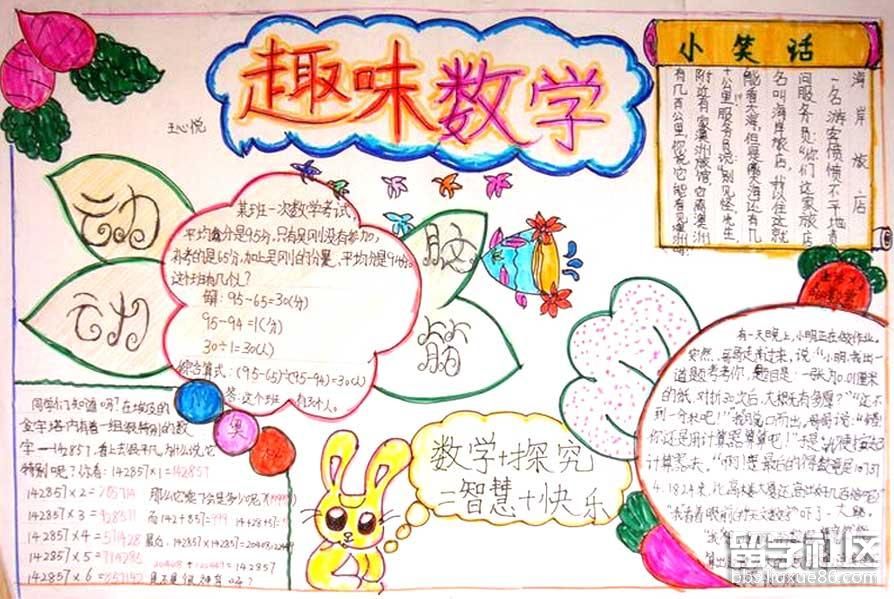 趣味数学
王心悦
小笑话
海岸旅店
一名游客愤愤不平地责
问服务员：“你们这家旅店
名叫海岸旅店，我以住这就
能看大海，但是离大海还有几
十公里！”服务员说：“别见怪，先生，
附近有家澳洲旅馆，它离澳洲
有几百公里，你说它能看见澳洲吗
动
动
脑
筋
某班一次数学考试，
平均盘分是95分，只有吴刚没有参加，
补考的是65分，加上吴刚的分量、平均分是94分。
这个班有几个人？
解：95-65=30(分)
95-94=1(分)
30÷1=30(人)
综合算式：(95-65)÷(95-94)=30(人)
答：这个班一共有30个人。
奥
同学们知道吗？在埃及的
金字塔内有着一组很特别的数
字——142857，看上去很平凡，为什么说它
特别呢？你看：142857×1=142857
142857×2=285714
142857×3=428571
142857×4=571428
142857×5=714285
142857×6=857142
那么它乘7会是多少呢？(999999)
而142+857=999
最后，142857×142857=20408122449
20408+122449=142857
是不是很神奇呀？
数学+探究
=智慧+快乐
有一天晚上，小明正在做作业。
突然，哥哥走过来，说：“小明，我出一
道题考考你，题目是：一张为0.01厘米
的纸，对折30次后，大概有多高？”“还不
到一分米吧！”我脱口而出，哥哥说：“错
你还是用计算器算算吧！”于是，我便拿起
计算器去，“啊！是最后的得数竟是107374
4.1824米，比高楼大厦还高出好几百倍吧！
“我看着眼前的天文数字”吓了一大跳，
留学社区
bbs.liuxue86.com